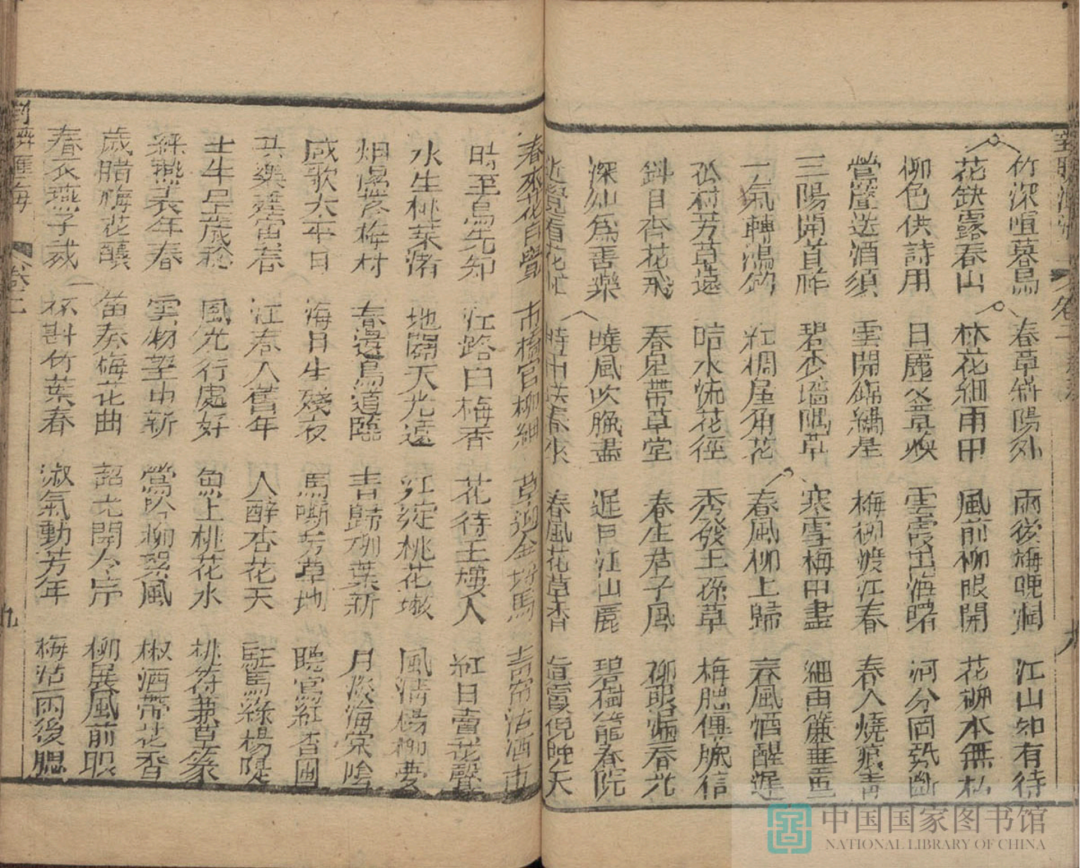 竹深喧暮鳥 春草 陽外 雨後梅 江山如有待
花缺露春山 林花細雨中 風前柳眼開 花柳本無私
柳色供詩用 日麗文章煥 雲霞出海曙 河分岡勢斷
鶯聲送酒須 雲開錦繡 梅柳渡江春 春入燒痕青
三陽開首祚 碧 墻隅草 寒雪梅中盡 細雨簾垂重
一氣轉鴻鈞 紅 屋角花 春風柳上歸 春風酒醒遲
孤村芳草遠 暗水流花徑 秀發王孫草 梅腮傳臘信
斜日杏花飛 春星帶草堂 春生君子風 柳眼漏春光
深山為善樂 曉風吹臘盡 遲日江山麗 碧樹籠春院
近覺有花 時 春來 春風花草香 霞 晚天
春來花自覺 市橋官柳細 草迎金埒馬 青帘沽酒市
時至鳥先知 江路白梅香 花待玉樓人 紅日賣花聲
水生桃葉渚 地闊天光遠 紅綻桃花 風清楊柳
烟煖落梅村 春邊鳥道臨 青歸柳葉新 月淡海棠陰
咸歌太平日 海日生殘夜 馬嘶芳草地 曉 紅杏圃
共樂建寅春 江春入舊年 人醉杏花天 駐馬綠楊隄
土牛呈歲稔 風光行處好 魚上桃花水 桃符兼草篆
綵燕表年春 雲物望中新 鶯吟柳 風 椒酒帶花香
歲腊梅花釀 笛奏梅花曲 詔光開令序 柳展風前眼
春衣燕子裁 杯斟竹葉春 淑氣動芳年 梅沾雨後腮
匯海 卷 九
中国国家图书馆
NATIONAL LIBRARY OF CHINA